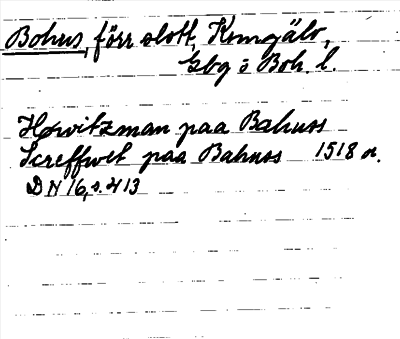 Bohus, förr slott, Kungälv,
Gbg o Boh. l.
Høvitzman paa Bahuss
Screffwet paa Bahuss 1518 or.
DN 16, s. 413